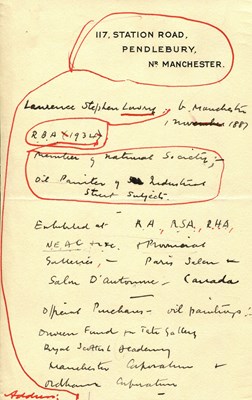 117, STATION ROAD,
PENDLEBURY,
NR MANCHESTER.
Laurence Stephen Lowry, b. Manchester
1 November 1887
R.B.A. (1934)
Member of National Society,
Oil Painter of Industrial
Street Subjects.
Exhibited at R A, RSA, RHA,
NEAC & Provincial
Galleries, — Paris Salon —
Salon D'Automne — Canada
Official Purchases — oil paintings:—
Duveen Fund for Tate Gallery
Royal Scottish Academy
Manchester Corporation &
Oldham Corporation
Address: